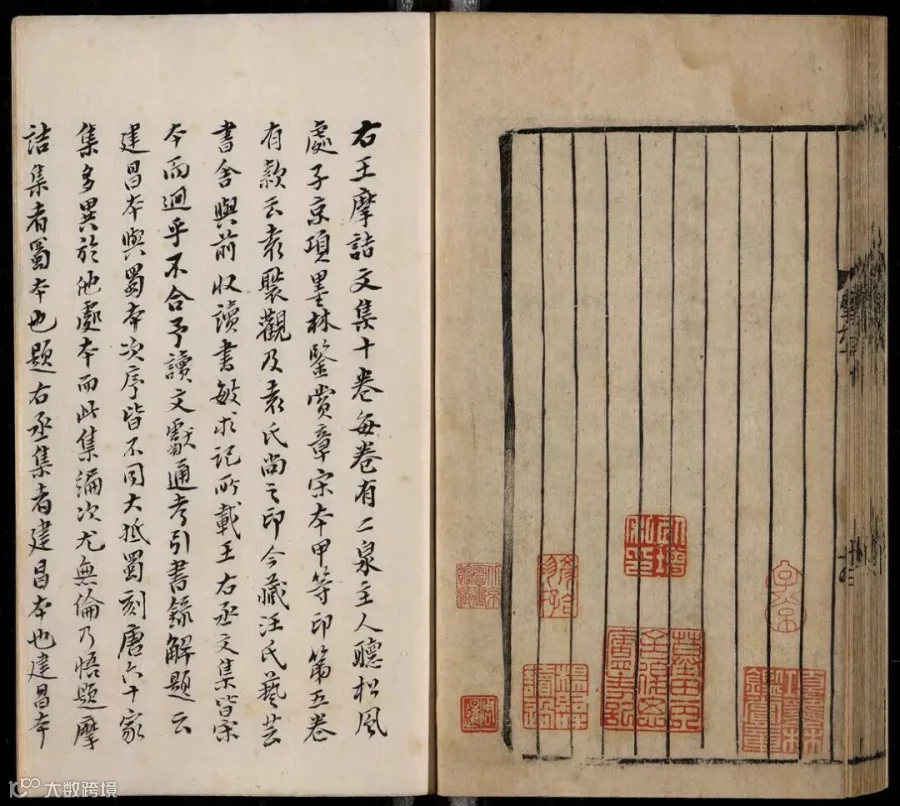 右王摩詰文集十卷每卷有二泉主人聽松風
處子京項墨林鑒賞章宋本甲等印第五卷
有款云袁褧觀及袁氏尚之印今藏汪氏藝芸
書舍與前收讀書敏求記所載王右丞文集皆宋
本而迥乎不合予讀文獻通考引書錄解題云
建昌本與蜀本次序皆不同大抵蜀刻唐六十家
集多異於他處本而此集編次尤無倫乃悟題摩
詰集者蜀本也題右丞集者建昌本也建昌本
子京
項墨林鑑賞章
大数跨境